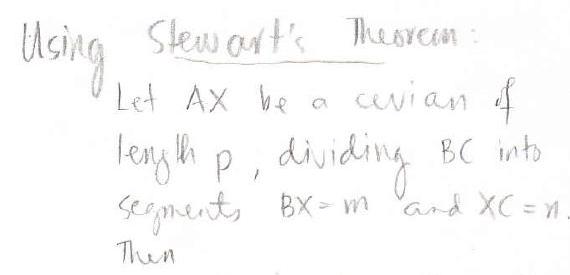 Using Stewart's Theorem:
Let AX be a cevian of
length p, dividing BC into
segments BX = m and XC = n.
Then